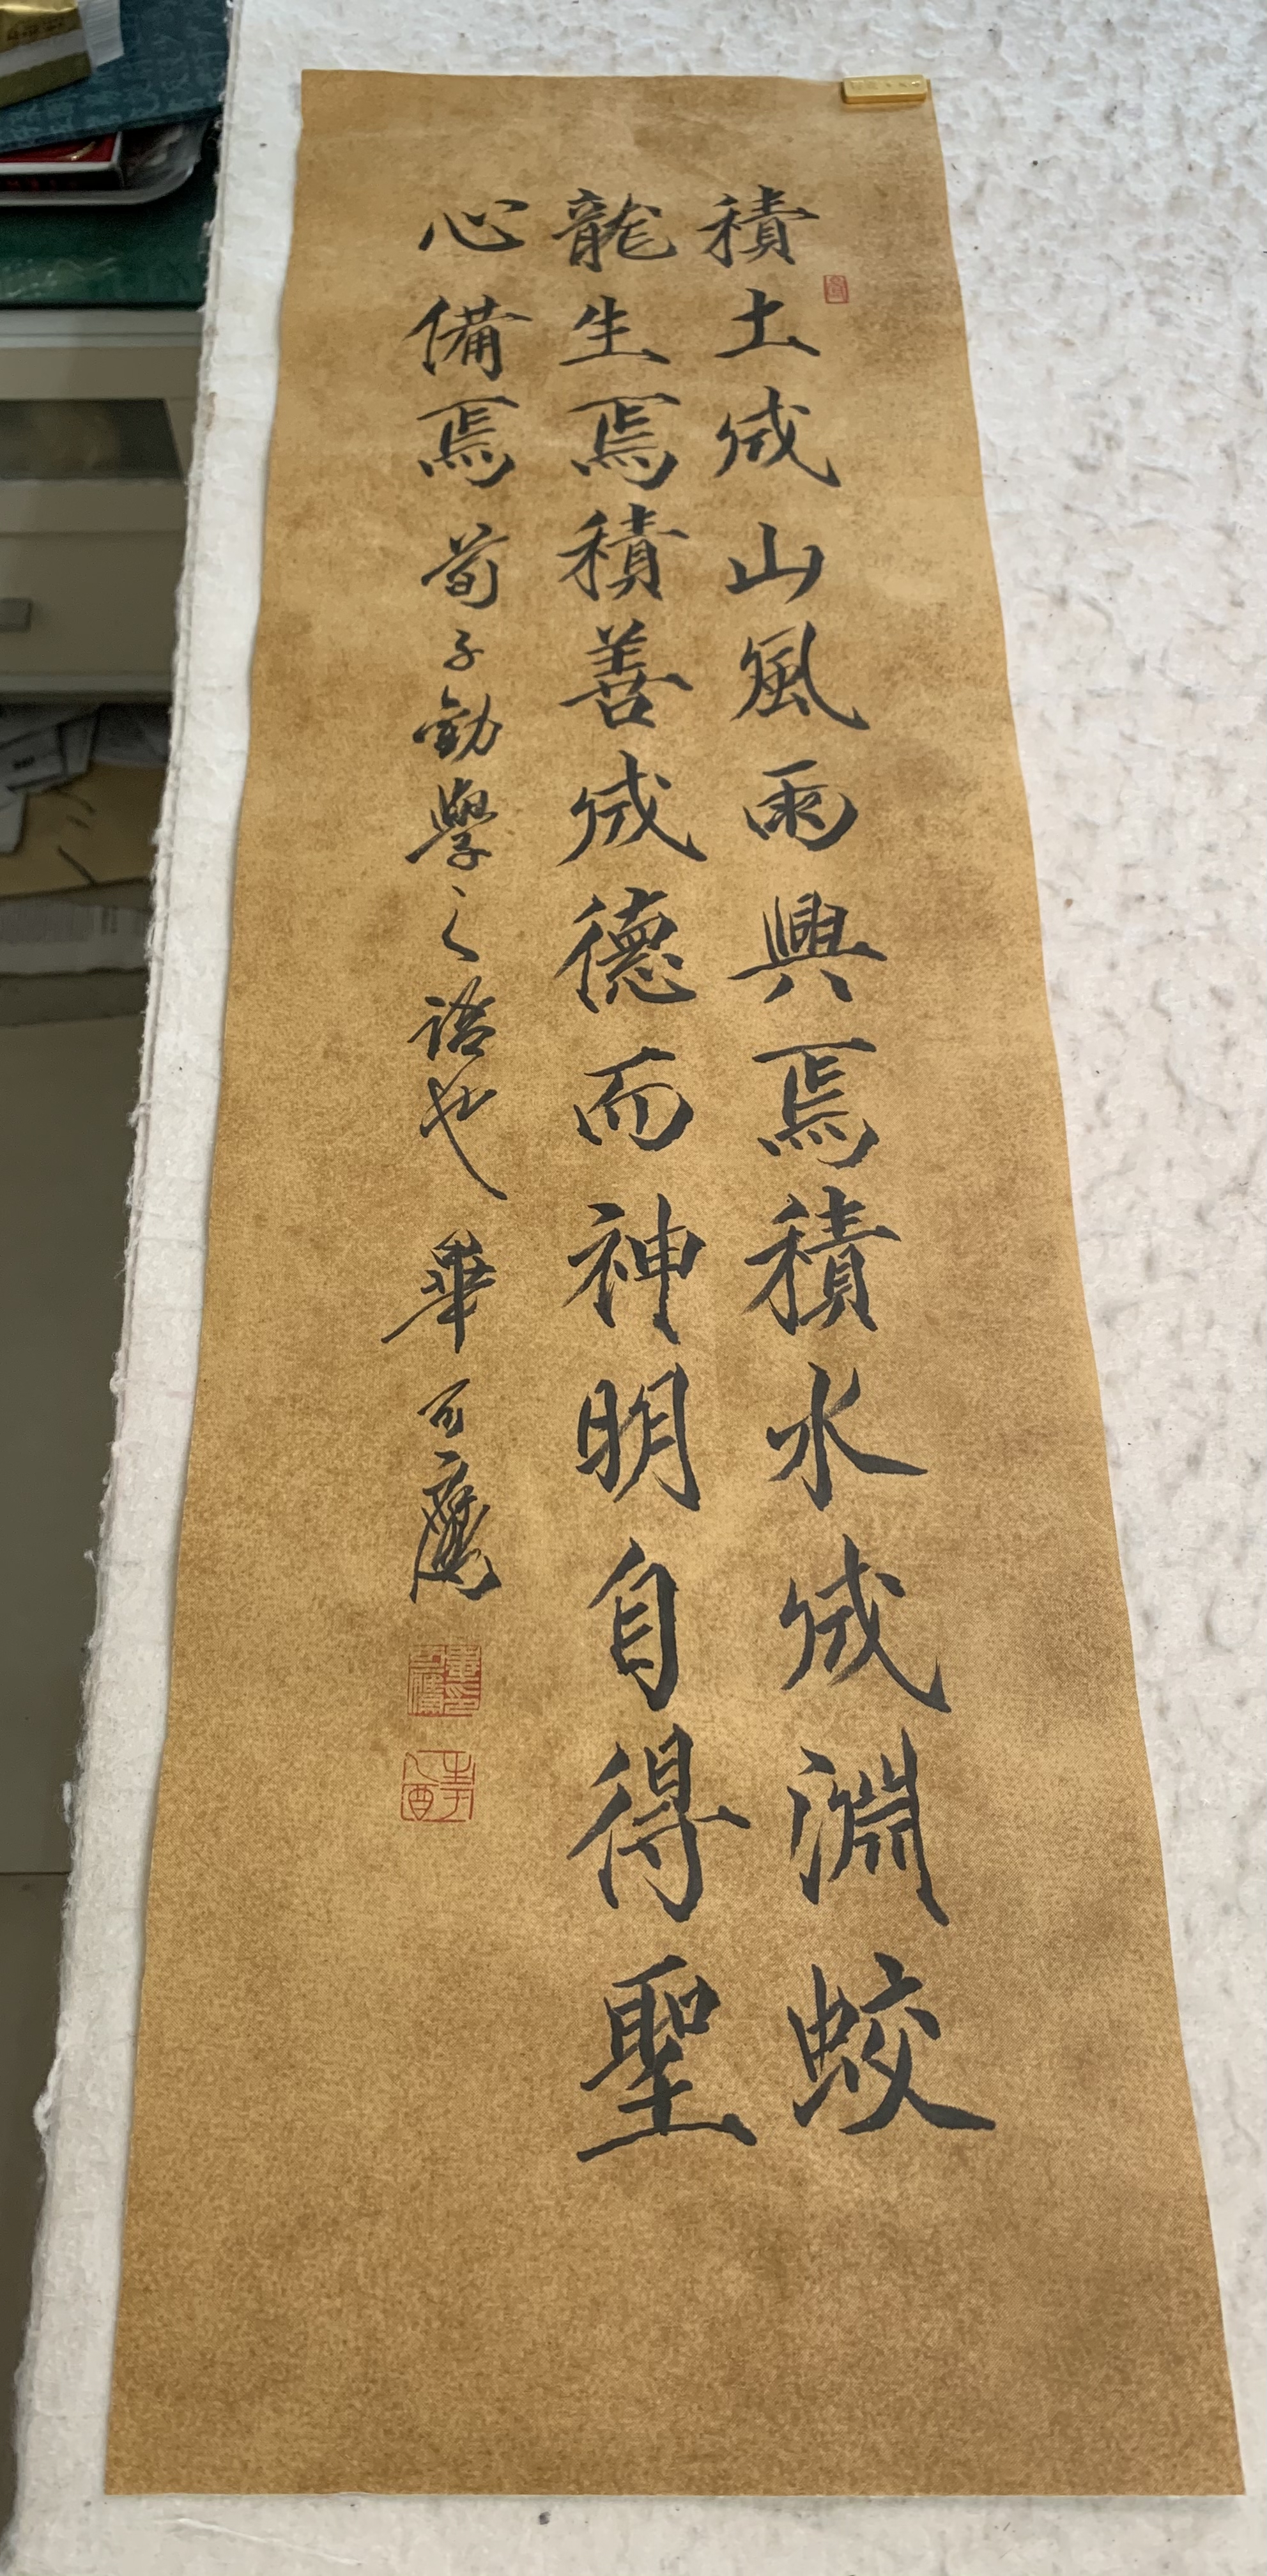 積土成山風雨興焉積水成淵蛟
龍生焉積善成德而神明自得聖
心備焉 荀子勸學之語也 華百鷹